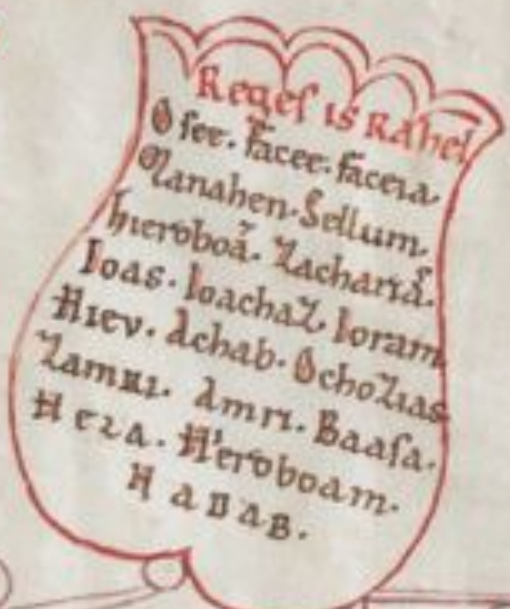 Regeſ iſRahel
Oſee. facee. faceia.
Manahen. Sellum.
hieroboã. Zachariaſ.
Ioas. Ioachaz. Ioram
Hieu. Achab. Ochozias
Zamri. Amri. Baaſa.
Hela. Hieroboam.
NADAB.